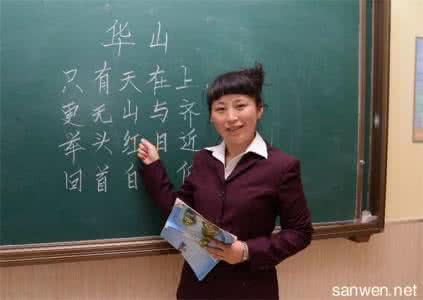 华山
只有天在上
更无山与齐
举头红日近
回首白
sanwen.net